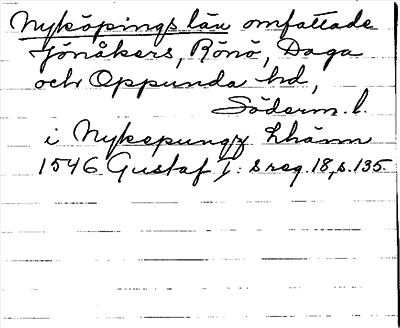 Nyköpings län omfattade
Jönåkers, Rönö, Daga
och Oppunda hd,
Söderm. l.
i Nykepungx Lhänn
1546 Gustaf I: s reg. 18, s. 135.